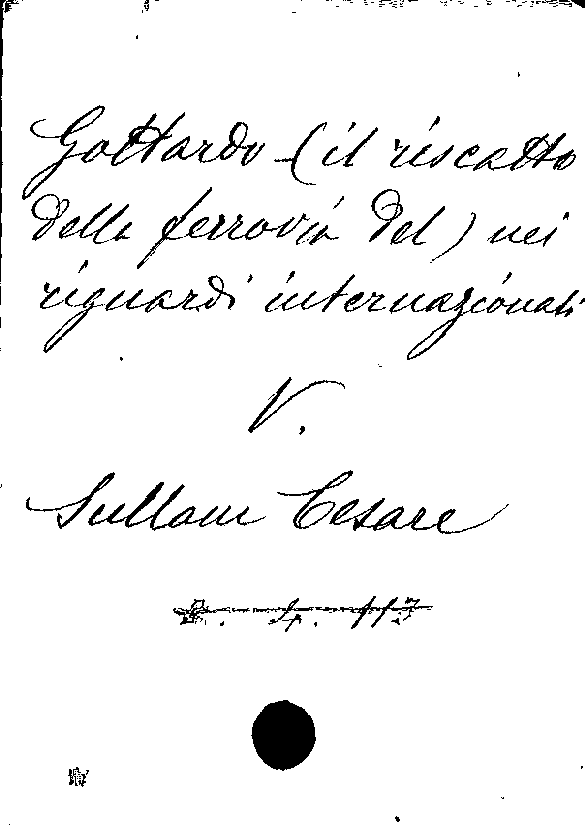 Gottardo (il riscatto
della ferrovia del) nei
riguardi internazionali
V.
Sullam Cesare
4. 113